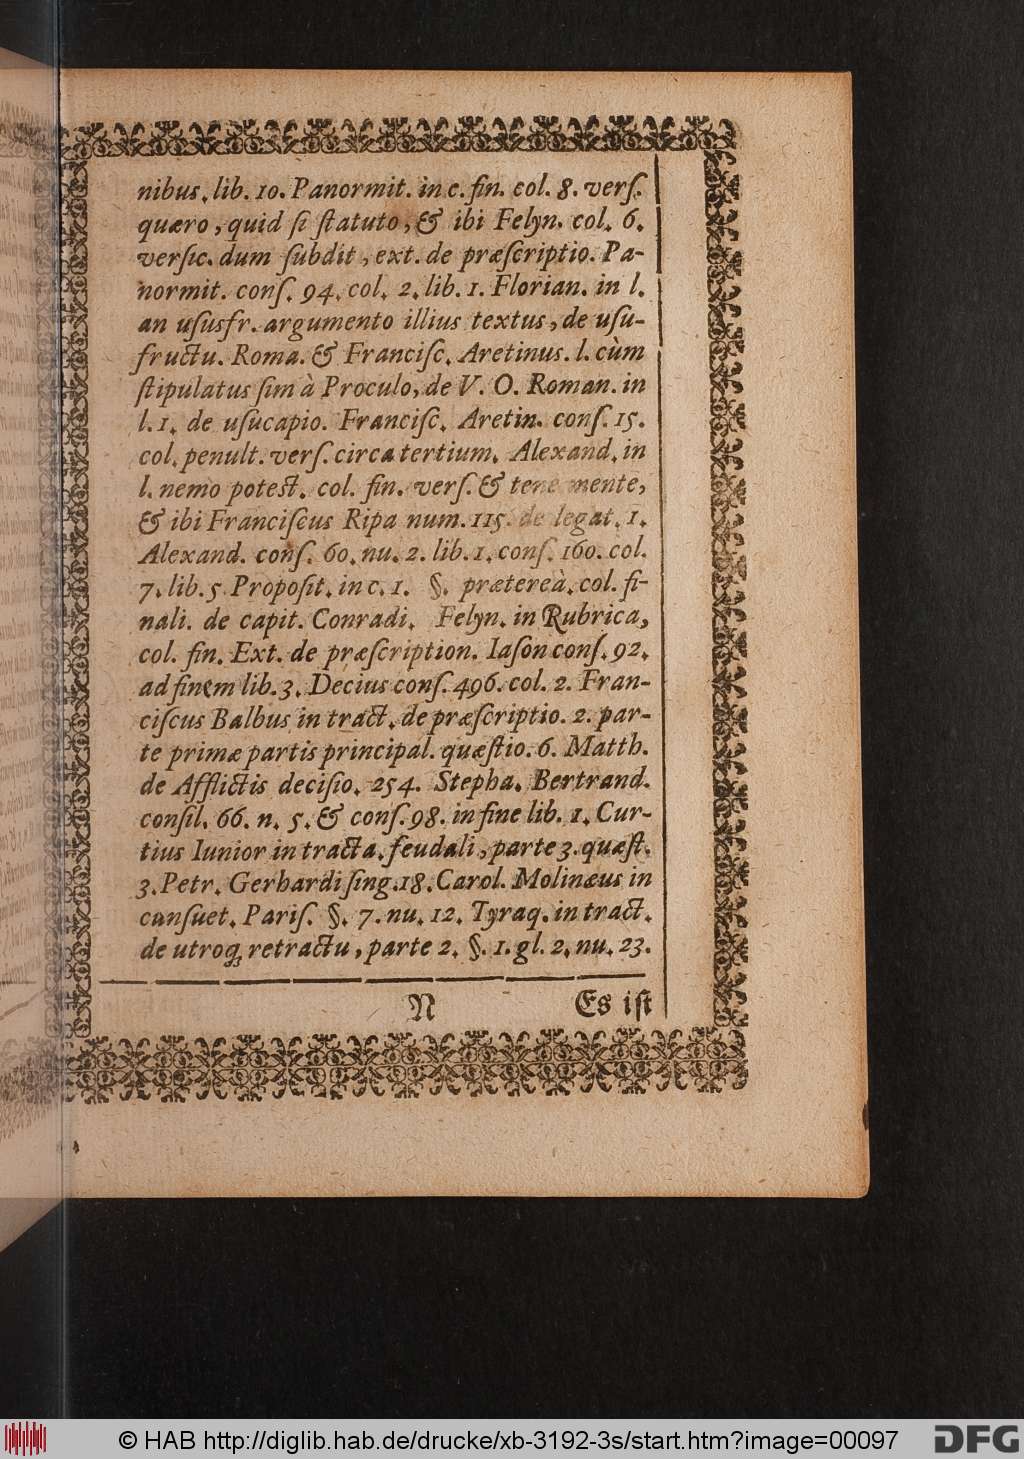 nibus. lib. 10. Panormit. in c. fin. col. 8. verſ.
quæro, quid ſi ſtatuto, & ibi Felyn. col. 6.
verſic. dum ſubdit, ext. de præſcriptio. Pa-
normit. conſ. 94. col. 2. lib. 1. Florian. in l.
an uſusfr. argumento illius textus, de uſu-
fructu. Roma. & Franciſc. Aretinus. l. cùm
ſtipulatus ſim à Proculo, de V. O. Roman. in
l. 1. de uſucapio. Franciſc. Aretin. conſ. 15.
col. penult. verſ. circa tertium. Alexand. in
l. nemo poteſt. col. fin. verſ. & tene mente,
& ibi Franciſcus Ripa num. 115. de legat. 1.
Alexand. conſ. 60. nu. 2. lib. 1. conſ. 160. col.
7. lib. 5 Propoſit. in c. 1. §. prætereà. col. fi-
nali. de capit. Conradi. Felyn. in Rubrica,
col. fin. Ext. de præſcription. Iaſon conſ. 92.
ad finem lib. 3. Decius conſ. 496. col. 2. Fran-
ciſcus Balbus in tract. de præſcriptio. 2. par-
te primæ partis principal. quæſtio. 6. Matth.
de Afflictis deciſio. 254. Stepha. Bertrand.
conſil. 66. n. 5. & conſ. 98. in fine lib. 1. Cur-
tius Iunior in tracta. feudali, parte 3. quæſt.
3. Petr. Gerhardi ſing. 18. Carol. Molinæus in
canſuet. Pariſ. §. 7. nu. 12. Tyraq. in tract.
de utroq; retractu, parte 2. §. 1. gl. 2. nu. 23.
N Es iſt
© HAB http://diglib.hab.de/drucke/xb-3192-3s/start.htm?image=00097 DFG